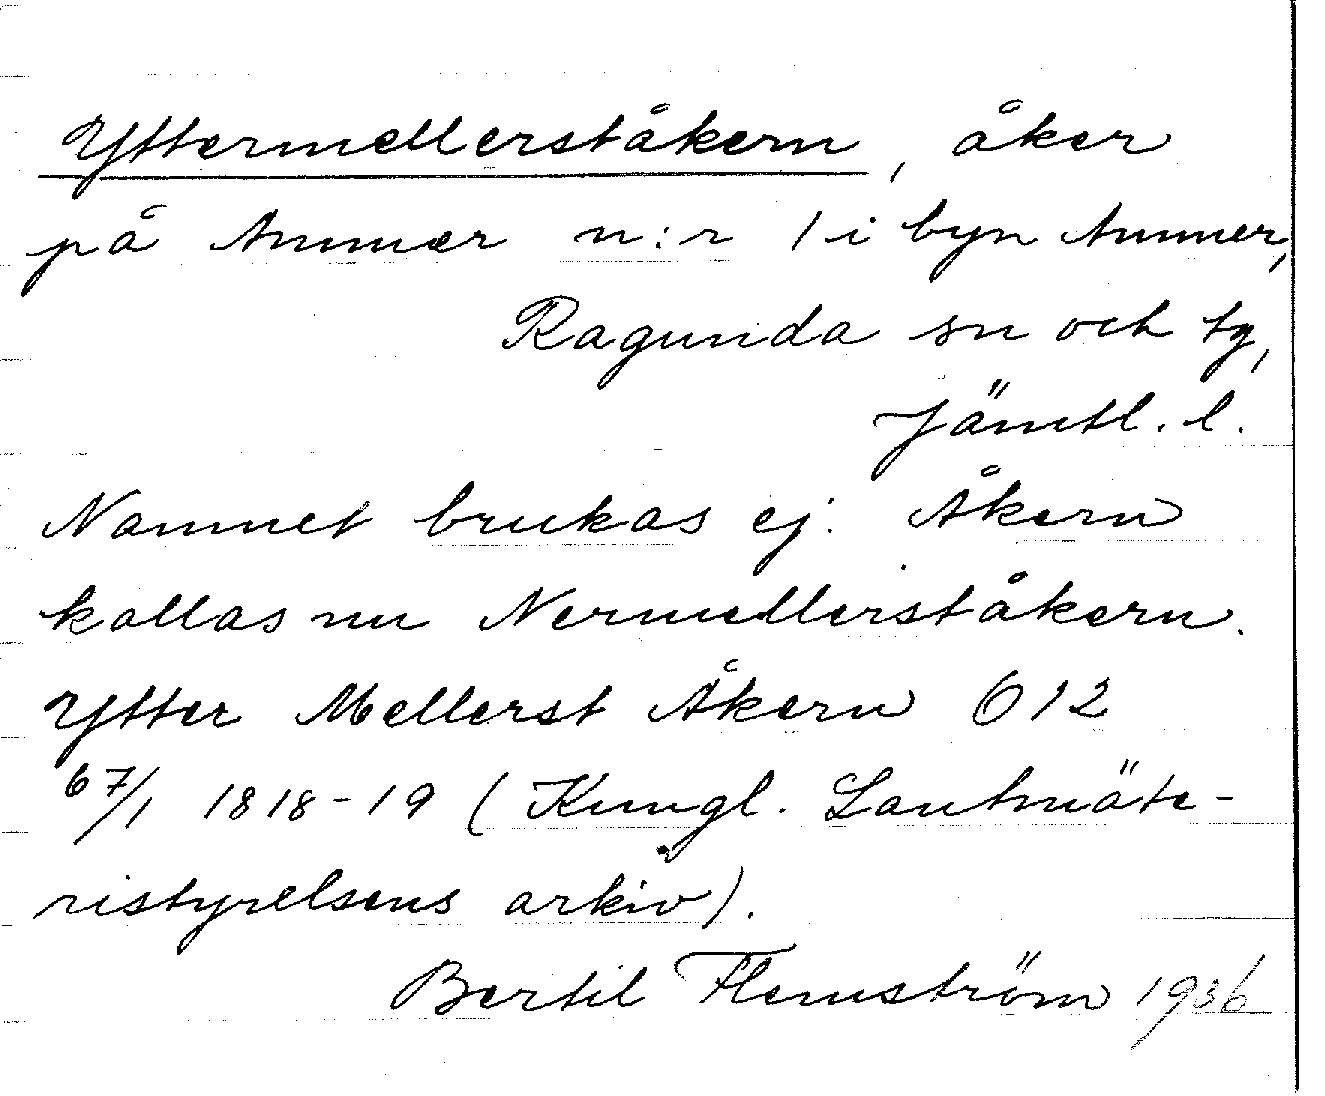 Yttermellerståkern, åker
på Ammer n:r 1 i byn Ammer,
Ragunda sn och tg,
Jämtl. l.
Namnet brukas ej. Åkern
kallas nu Nermellerståkern.
Ytter Mellerst Åkern 612
67/1 1818-19 (Kungl. Lantmäte-
ristyrelsens arkiv).
Bertil Flemström 1936